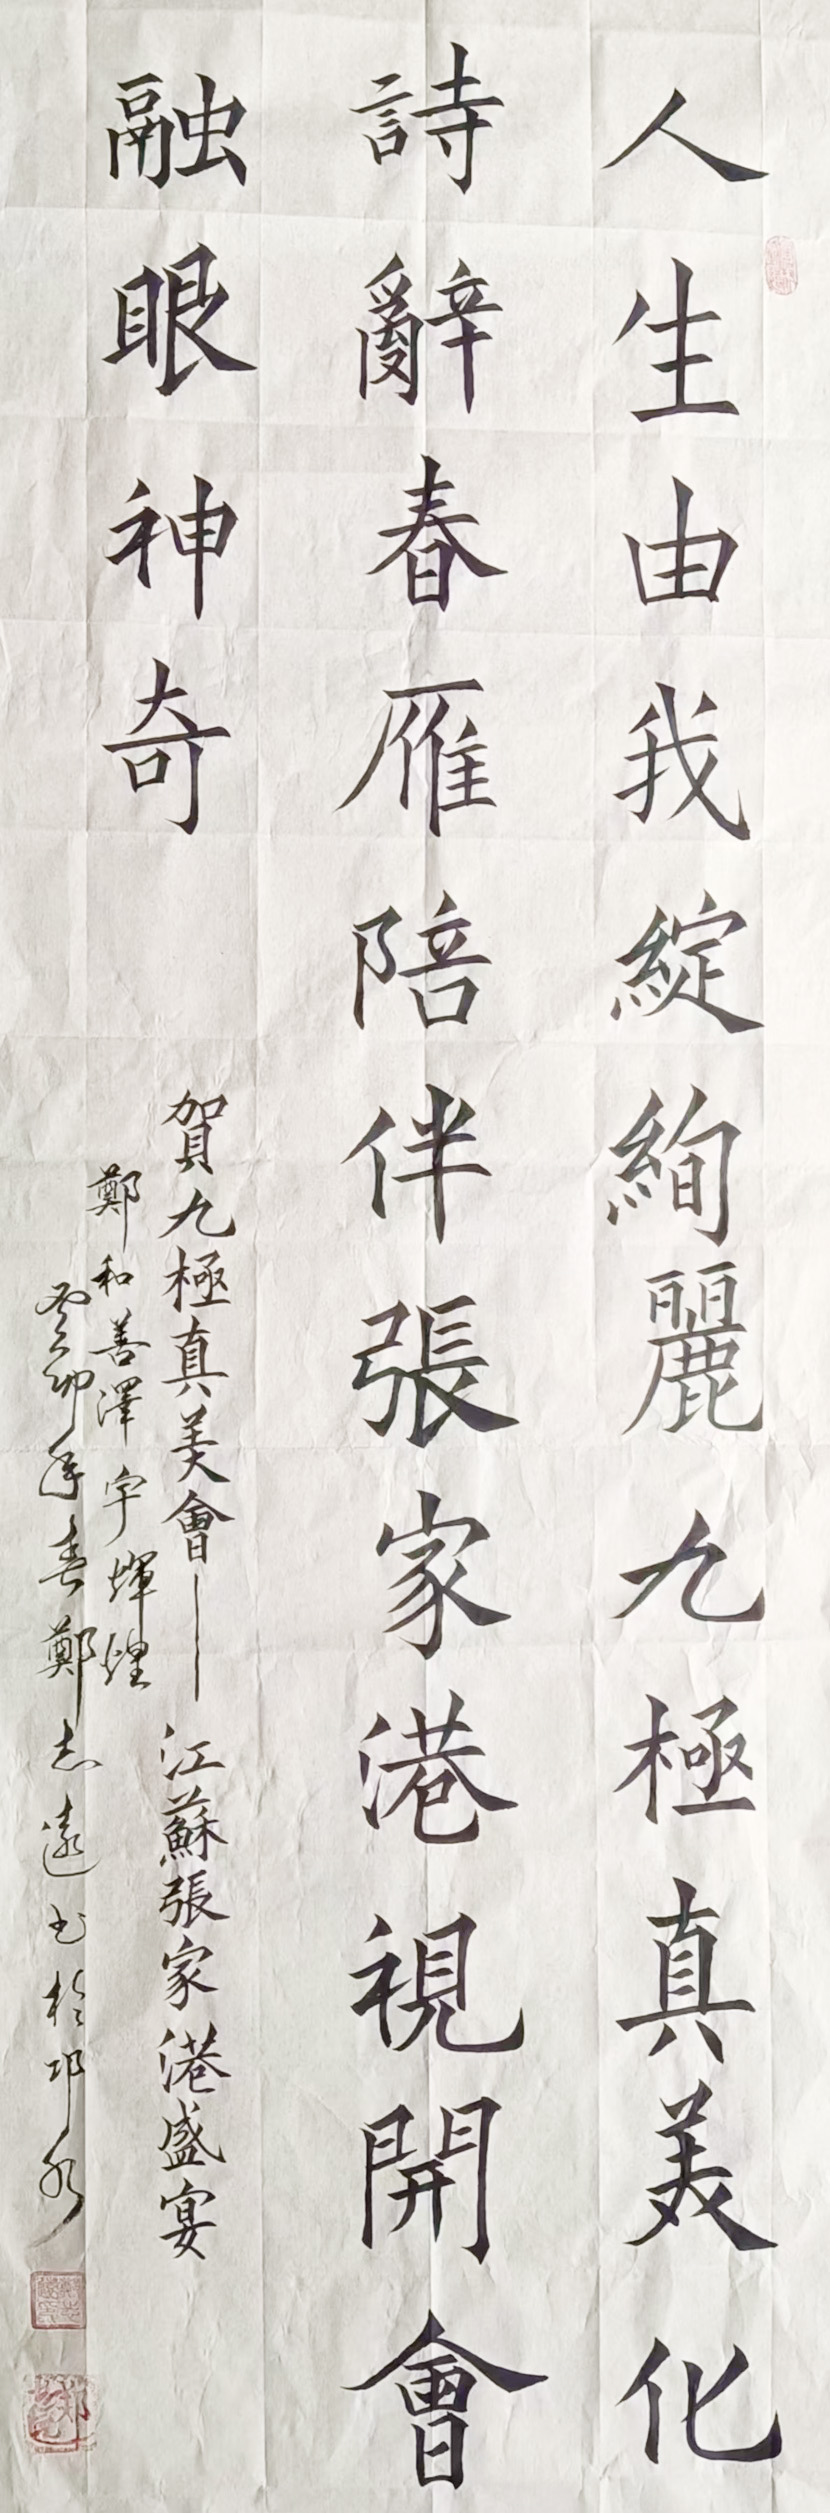 人生由我綻絢麗九極真美化
詩辭春雁陪伴張家港視開會
融眼神奇
賀九極真美會——江蘇張家港盛宴
鄭和善澤宇輝煌
癸卯年春鄭志遠书於邛水